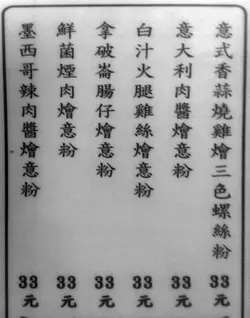 意式香蒜燒雞燴三色螺絲粉
33元
意大利肉醬燴意粉
33元
白汁火腿雞絲燴意粉
33元
拿破崙腸仔燴意粉
33元
鮮菌煙肉燴意粉
33元
墨西哥辣肉醬燴意粉
33元